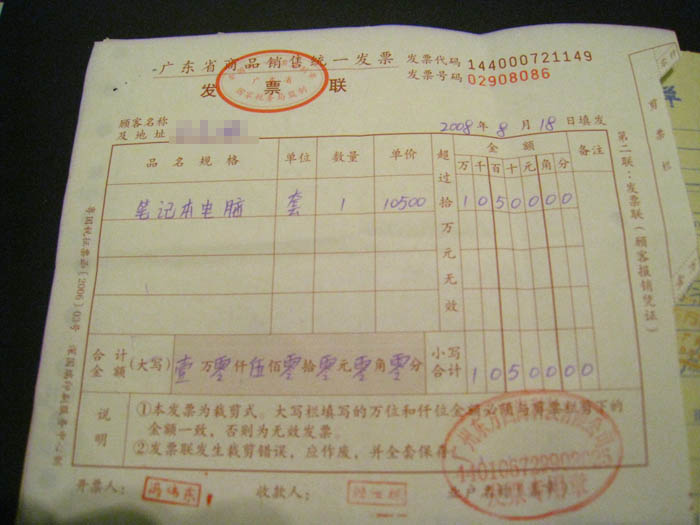 广东省商品销售统一发票
发票联
发票代码 144000721149
发票号码 02908086
顾客名称
及地址
2008年8月18日填发
品名规格 单位 数量 单价 超过拾万元无效 金额 备注
万 千 百 十 元 角 分
笔记本电脑 套 1 10500 1 0 5 0 0 0 0
合计金额 (大写) 壹万零仟伍佰零拾零元零角零分 小写合计 1 0 5 0 0 0 0
说明
①本发票为裁剪式。大写栏填写的万位和仟位金额必须与剪票栏剪下的
金额一致，否则为无效发票。
②发票联发生裁剪错误，应作废，并全套保存
开票人： 收款人：
第二联：发票联（顾客报销凭证）
剪票栏